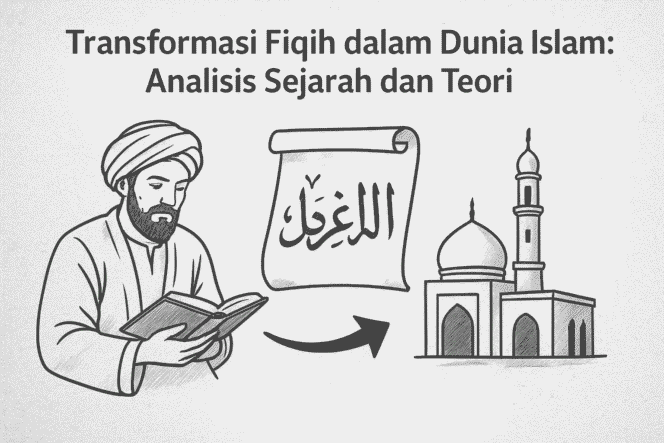 Transformasi Fiqih dalam Dunia Islam:
Analisis Sejarah dan Teori